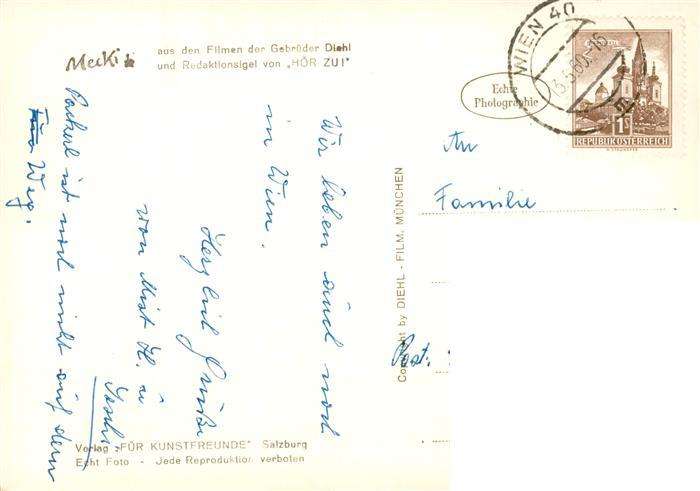 Mecki
aus den Filmen der Gebrüder Diehl
und Redaktionsigel von „HÖR ZU!"
Wir leben auch noch
in Wien.
Herzlich Grüße
von
H. u
Packerl ist noch nicht auf dem
Weg.
Verlag „FÜR KUNSTFREUNDE" Salzburg
Echt Foto - Jede Reproduktion verboten
Copyright by DIEHL - FILM, MÜNCHEN
WIEN 40
Echte
Photographie
1S
REPUBLIK ÖSTERREICH
An
Familie
Post: